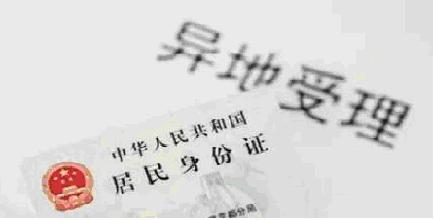 异地受理
中华人民共和国
居民身份证